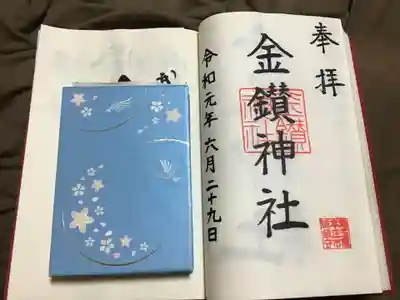 奉拝
金鑚神社
令和元年六月二十九日